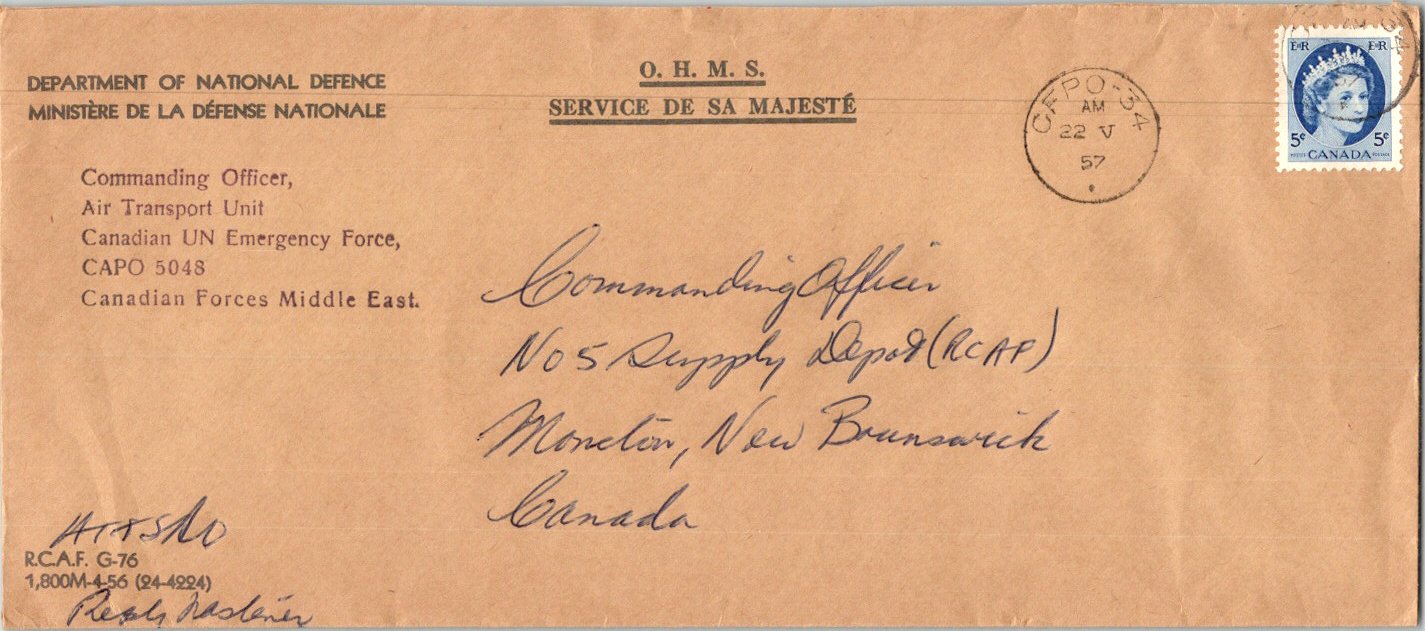 DEPARTMENT OF NATIONAL DEFENCE
MINISTÈRE DE LA DÉFENSE NATIONALE
O. H. M. S.
SERVICE DE SA MAJESTÉ
CFPO-34
AM
22 V
57
34
E R E R
5¢ 5¢
POSTES CANADA POSTAGE
Commanding Officer,
Air Transport Unit
Canadian UN Emergency Force,
CAPO 5048
Canadian Forces Middle East.
Commanding Officer
No 5 Supply Depot (RCAF)
Moncton, New Brunswick
Canada
R.C.A.F. G-76
1,800M-4-56 (24-4224)